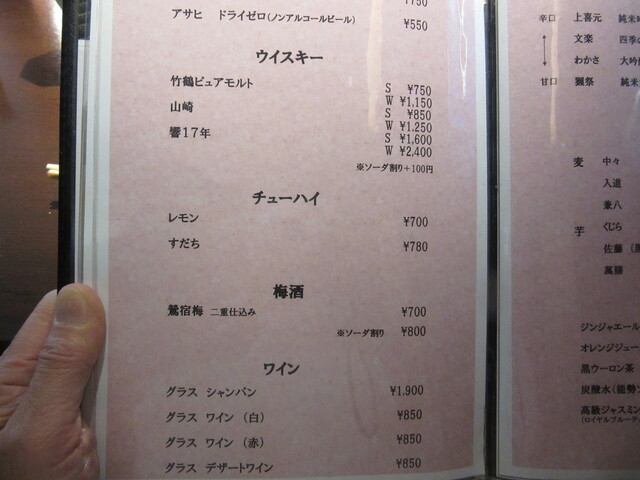 アサヒ ドライゼロ(ノンアルコールビール) ¥550
ウイスキー
竹鶴ピュアモルト S ¥750
W ¥1,150
山崎 S ¥850
W ¥1,250
響17年 S ¥1,600
W ¥2,400
※ソーダ割り+100円
チューハイ
レモン ¥700
すだち ¥780
梅酒
鶯宿梅 二重仕込み ¥700
※ソーダ割り ¥800
ワイン
グラス シャンパン ¥1,900
グラス ワイン (白) ¥850
グラス ワイン (赤) ¥850
グラス デザートワイン ¥850
辛口 上喜元 純米
文楽 四季の
わかさ 大吟
甘口 獺祭 純米
麦 中々
入道
兼八
芋 くじら
佐藤
萬膳
ジンジャエール
オレンジジュー
黒ウーロン茶
炭酸水(能勢
高級ジャスミン
(ロイヤルブルーテ